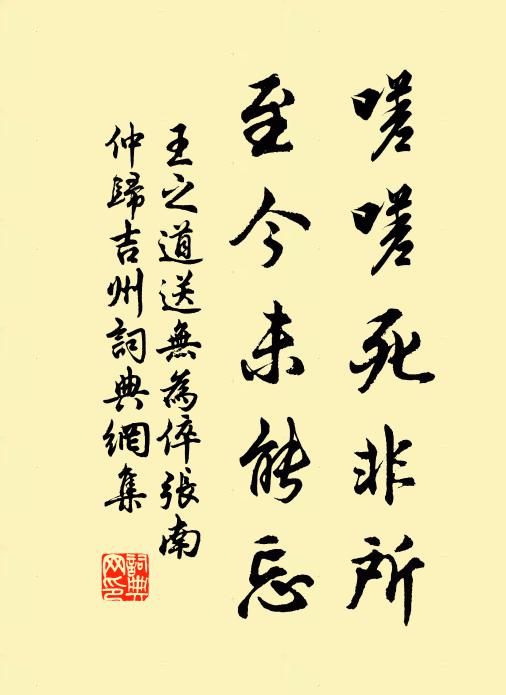 嗟嗟死非所
至今未能忘
王之道送無為倅張南
仲歸吉州詞典網集
詞典
网印